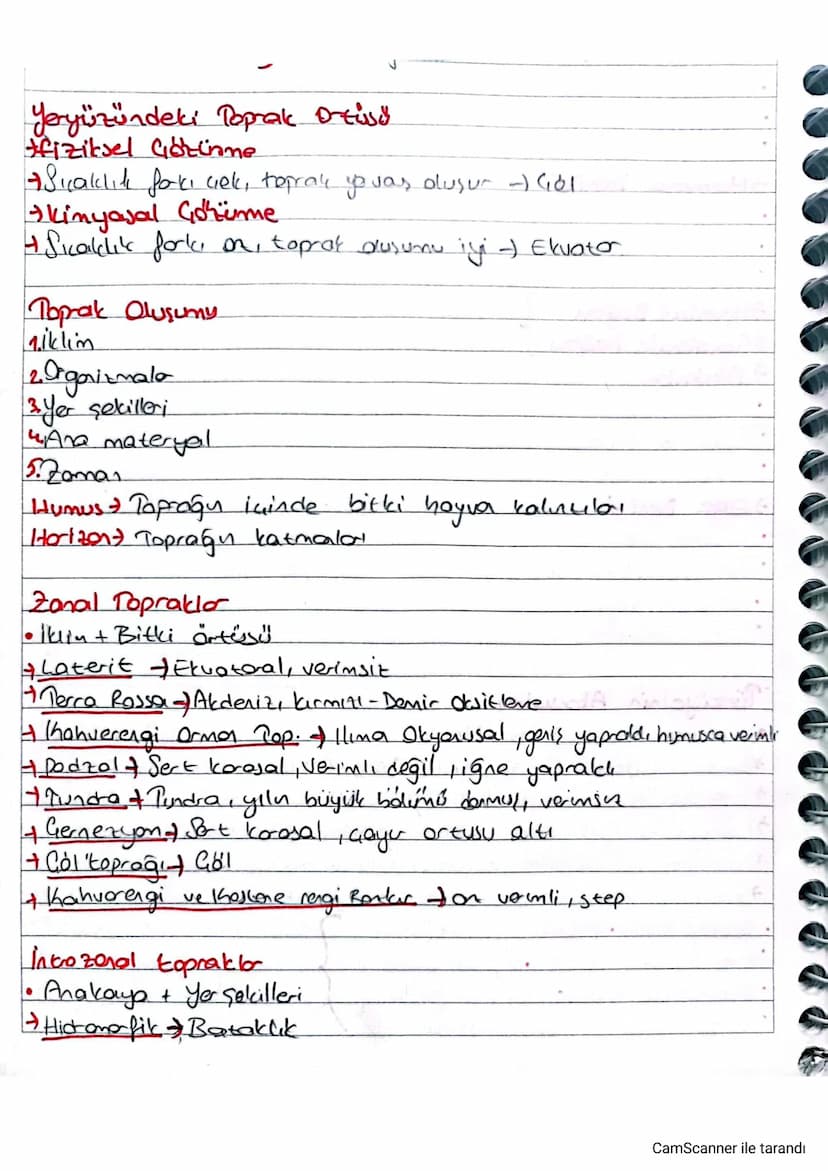 Yeryüzündeki Toprak Örtüsü
→fiziksel Çözünme
→Sıcaklık farkı çok, toprak yavaş oluşur → Çöl
→kimyasal Çözünme
→Sıcaklık farkı az, toprak oluşumu iyi → Ekvator
Toprak Oluşumu
1.İklim
2.Organizmala
3.Yer şekilleri
4.Ana materyal
5.Zaman
Humus→ Toprağın içinde bitki hayva kalıntıları
Horizon→ Toprağın katmaları
Zonal Topraklar
• İklim + Bitki örtüsü
→Laterit →Ekvatoral, verimsiz
→Terra Rossa→Akdeniz, kırmızı - Demir oksitleve
→ Kahverengi Orman Top. → Ilıma Okyanusal, geniş yapraklı, humusca verimli
→Podzal→ Sert karasal, Verimli değil, iğne yapraklı
→Tundra→ Tundra, yılın büyük bölümü donmuş, verimsiz
→ Çernezyom→ Sert karasal, çayır ortusu altı
→ Çöl toprağı→ Çöl
→ Kahverengi ve Kestane rengi Bozkır → az verimli, step
İntrazonal topraklar
• Anakaya + Yer Şekilleri
→Hidromorfik→ Bataklık
CamScanner ile tarandı